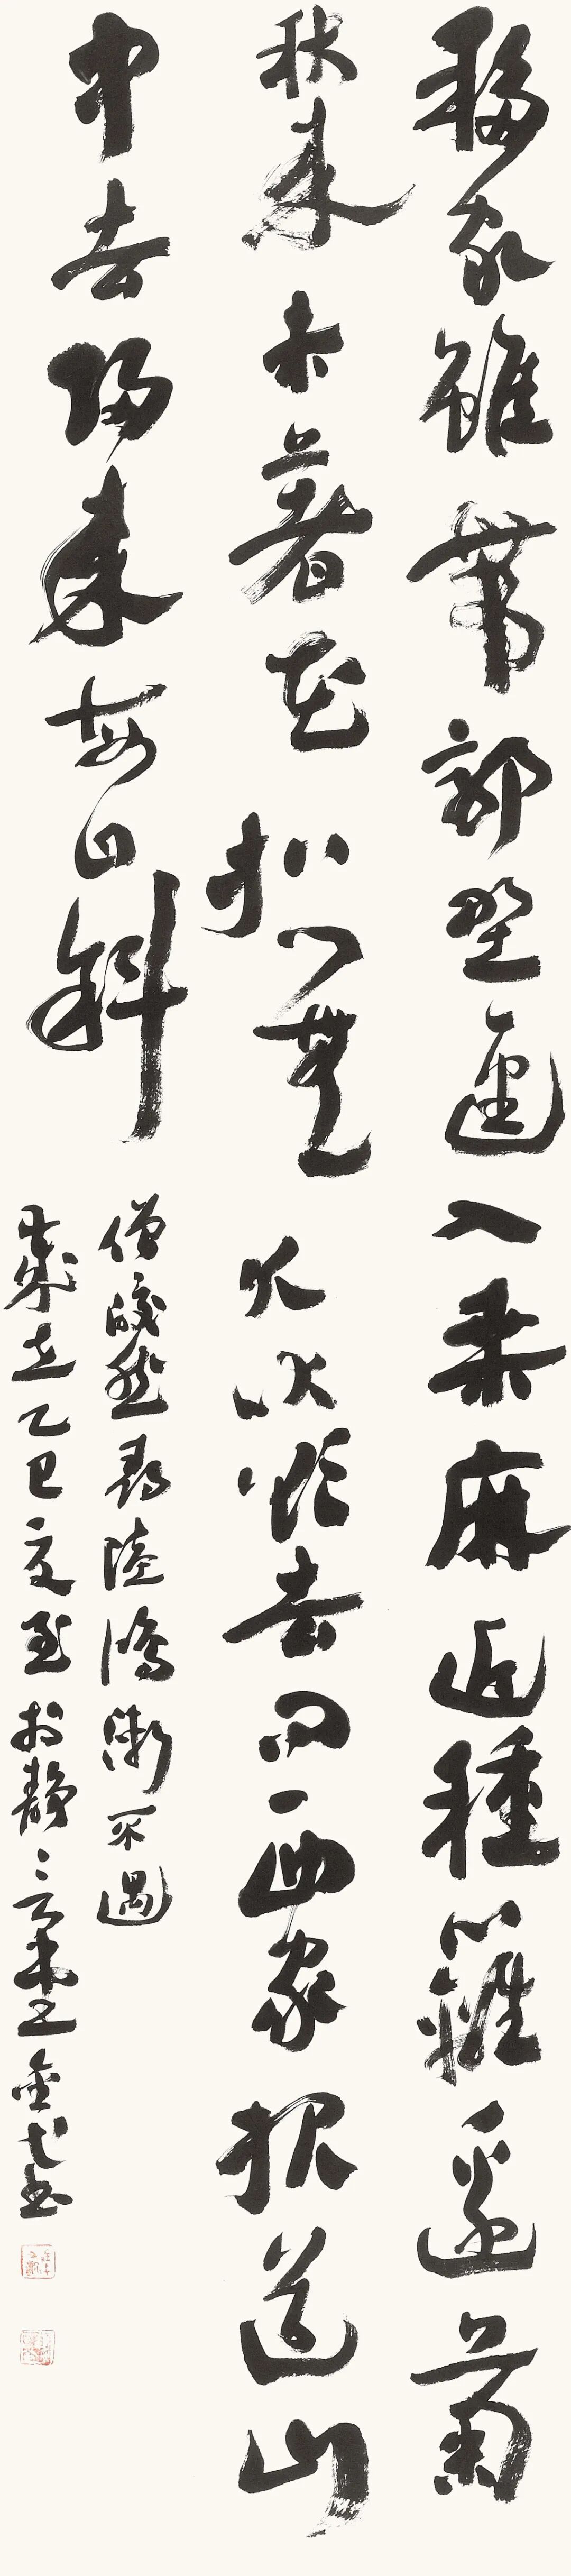 移家雖帶郭野逕入桑麻近種籬邊菊
秋來未著花扣門無犬吠欲去問西家報道山
中去歸來每日斜
僧皎然尋陸鴻漸不遇
歲在乙巳夏至於靜堂金書